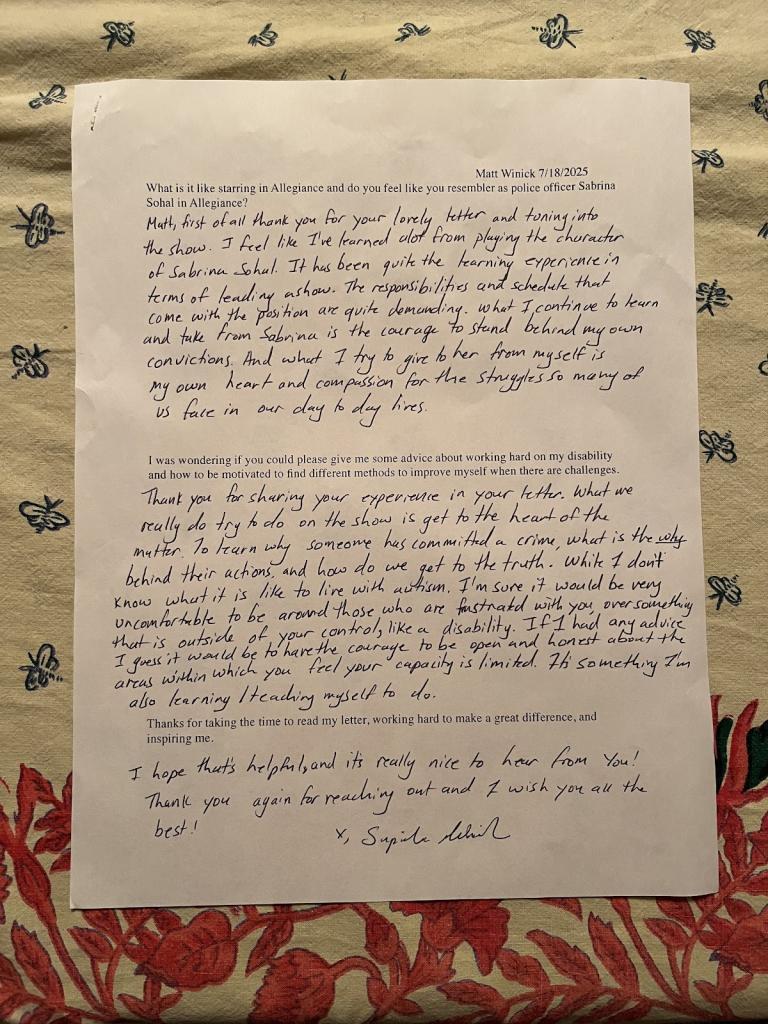 Matt Winick 7/18/2025
What is it like starring in Allegiance and do you feel like you resembler as police officer Sabrina
Sohal in Allegiance?
Matt, first of all thank you for your lovely letter and tuning into
the show. I feel like I've learned alot from playing the character
of Sabrina Sohal. It has been quite the learning experience in
terms of leading a show. The responsibilities and schedule that
come with the position are quite demanding. What I continue to learn
and take from Sabrina is the courage to stand behind my own
convictions. And what I try to give to her from myself is
my own heart and compassion for the struggles so many of
us face in our day to day lives.
I was wondering if you could please give me some advice about working hard on my disability
and how to be motivated to find different methods to improve myself when there are challenges.
Thank you for sharing your experience in your letter. What we
really do try to do on the show is get to the heart of the
matter. To learn why someone has committed a crime, what is the why
behind their actions, and how do we get to the truth. While I don't
know what it is like to live with autism, I'm sure it would be very
uncomfortable to be around those who are frustrated with you, over something
that is outside of your control, like a disability. If I had any advice
I guess it would be to have the courage to be open and honest about the
areas within which you feel your capacity is limited. It's something I'm
also learning / teaching myself to do.
Thanks for taking the time to read my letter, working hard to make a great difference, and
inspiring me.
I hope that's helpful, and it's really nice to hear from you!
Thank you again for reaching out and I wish you all the
best! x,